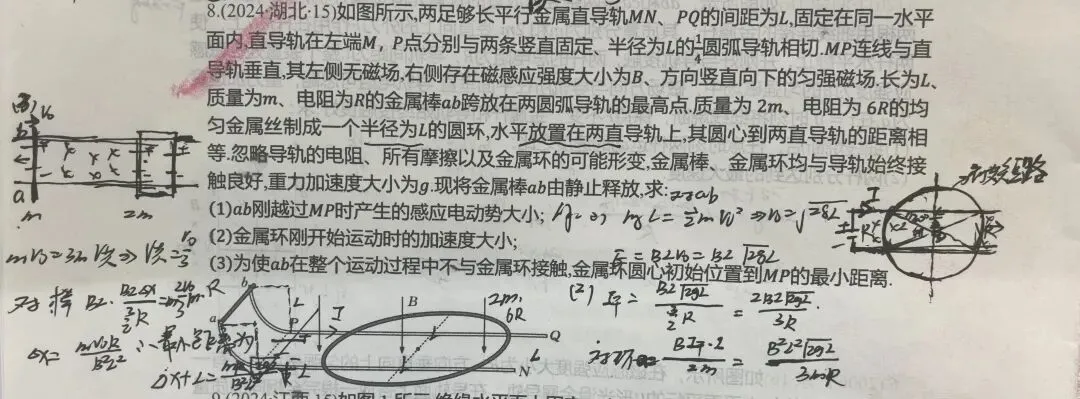 8.(2024·湖北·15)如图所示,两足够长平行金属直导轨MN、PQ的间距为L,固定在同一水平
面内,直导轨在左端M,P点分别与两条竖直固定、半径为L的1/4圆弧导轨相切.MP连线与直
导轨垂直,其左侧无磁场,右侧存在磁感应强度大小为B、方向竖直向下的匀强磁场.长为L、
质量为m、电阻为R的金属棒ab跨放在两圆弧导轨的最高点.质量为2m、电阻为6R的均
匀金属丝制成一个半径为L的圆环,水平放置在两直导轨上,其圆心到两直导轨的距离相
等.忽略导轨的电阻、所有摩擦以及金属环的可能形变,金属棒、金属环均与导轨始终接
触良好,重力加速度大小为g.现将金属棒ab由静止释放,求:对ab
(1)ab刚越过MP时产生的感应电动势大小; mgL=1/2mV₀²⇒V₀=√2gL
(2)金属环刚开始运动时的加速度大小; E=BLV₀=BL√2gL
(3)为使ab在整个运动过程中不与金属环接触,金属环圆心初始位置到MP的最小距离.
(3)
V₀
b
a
m
2m
mV₀=3mV共⇒V共=V₀/3
对棒 BL·
Δx=
∴最小距离为
Δx+L=
b
R
a
L
P
I
B
2m,
6R
Q
L
N
I
R
(2) I=BL√2gL/(3/2R)=2BL√2gL/3R.